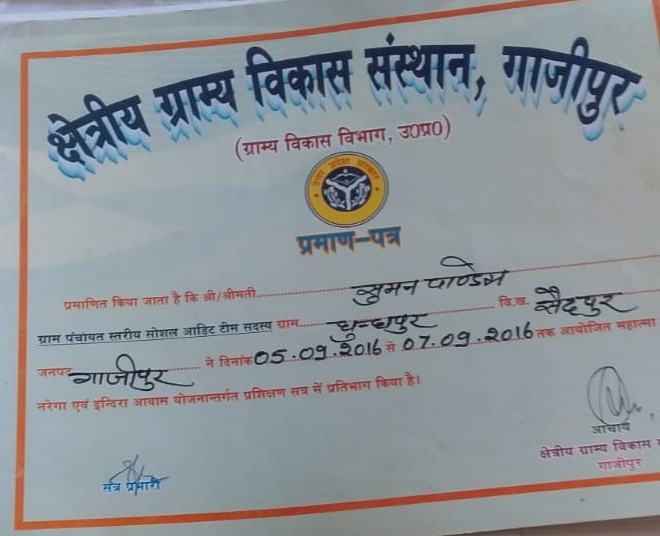 क्षेत्रीय ग्राम्य विकास संस्थान, गाजीपुर
(ग्राम्य विकास विभाग, उ0प्र0)
उत्तर प्रदेश सरकार
प्रमाण-पत्र
प्रमाणित किया जाता है कि श्री/श्रीमती सुमन पाण्डेय
ग्राम पंचायत स्तरीय सोशल आडिट टीम सदस्य ग्राम धुन्धपुर वि.ख. सैदपुर
जनपद गाजीपुर ने दिनांक 05.09.2016 से 07.09.2016 तक आयोजित महात्मा
नरेगा एवं इन्दिरा आवास योजनान्तर्गत प्रशिक्षण सत्र में प्रतिभाग किया है।
सत्र प्रभारी
आचार्य
क्षेत्रीय ग्राम्य विकास
गाजीपुर